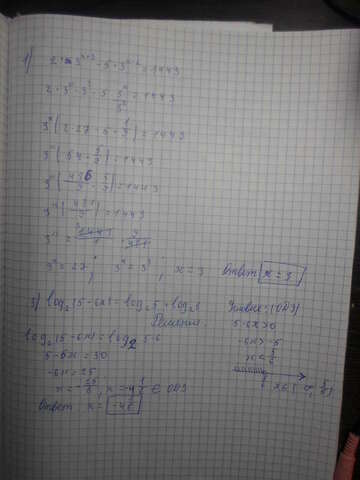 1) 2 · 3^(x+3) - 5 · 3^(x-2) = 1443
2 · 3^x · 3^3 - 5 · 3^x/3^2 = 1443
3^x (2 · 27 - 5 · 1/9) = 1443
3^x (54 - 5/9) = 1443
3^x (486/9 - 5/9) = 1443
3^x (481/9) = 1443
3^x = 1443/1 · 9/481
3^x = 27, 3^x = 3^3, x = 3 Ответ x = 3
3) log2(5-6x) = log2 5 + log2 6
Решение:
log2(5-6x) = log2 5·6
5 - 6x = 30
-6x = 25
x = -25/6, x = -4 1/6 ∈ ОДЗ
Ответ x = -4 1/6
(ОДЗ)
5-6x > 0
-6x > -5
x < 5/6